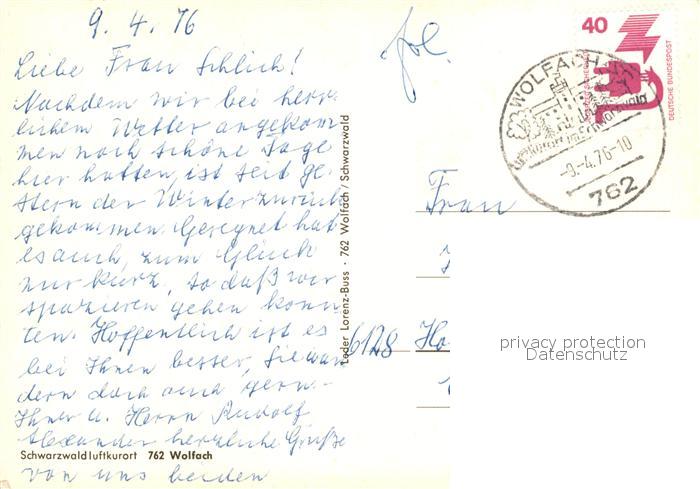 9. 4. 76
Liebe Frau Schlich!
Nachdem wir bei herr-
lichem Wetter angekom
men noch schöne Tage
hier hatten, ist seit ge-
stern der Winter zurück
gekommen. Geregnet hat
es auch, zum Glück
nur kurz, so daß wir
spazieren gehen konn
ten. Hoffentlich ist es
bei Ihnen besser, Sie wan
dern doch auch gern.-
Ihnen u. Herrn Rudolf
Alexander herzliche Grüße
Schwarzwaldluftkurort 762 Wolfach
von uns beiden
Leder Lorenz-Buss · 762 Wolfach / Schwarzwald
40
DEUTSCHE BUNDESPOST
WOLFACH
Luftkurort im Schwarzwald
-9.-4.76-10
762
Frau
6128 Ho
privacy protection
Datenschutz